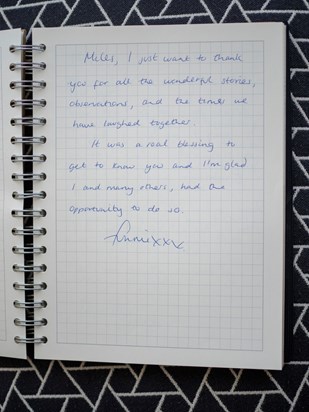 Miles, I just want to thank
you for all the wonderful stories,
observations, and the times we
have laughed together.
It was a real blessing to
get to know you and I'm glad
I and many others, had the
opportunity to do so.
Annie xxx